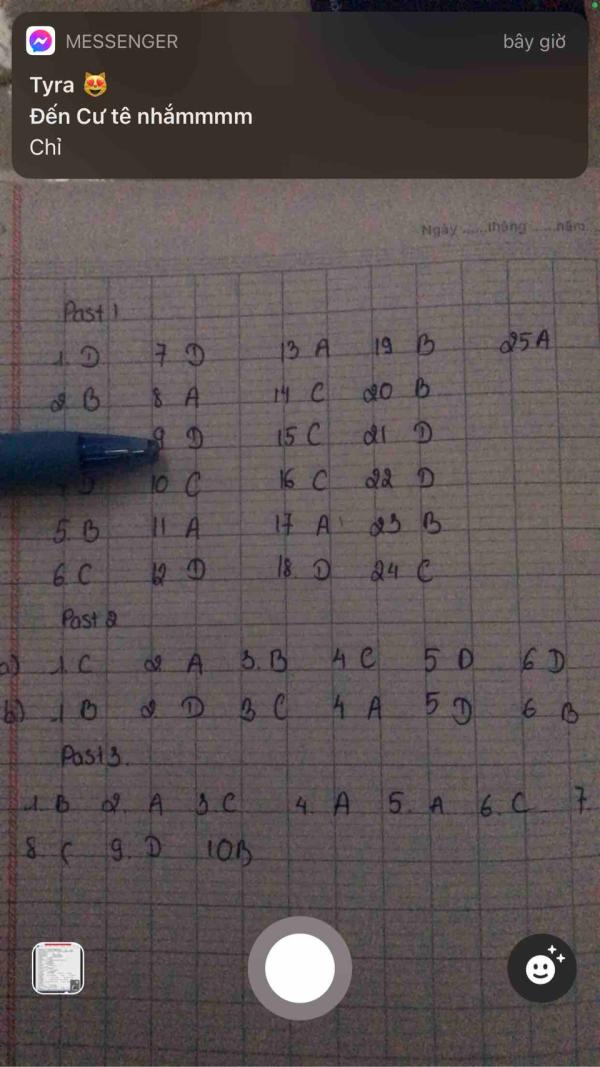 MESSENGER bây giờ
Tyra 😻
Đến Cư tê nhắmmmm
Chỉ
Ngày ......tháng ......năm
Past 1
1. D 7 D 13 A 19 B 25 A
2. B 8 A 14 C 20 B
9 D 15 C 21 D
D 10 C 16 C 22 D
5. B 11 A 17 A 23 B
6. C 12 D 18. D 24 C
Past 2
a) 1. C 2. A 3. B 4 C 5 D 6 D
b) 1 B 2. D 3 C 4 A 5 D 6 B
Past 3.
1. B 2. A 3. C 4. A 5. A 6. C 7.
8. C 9. D 10B